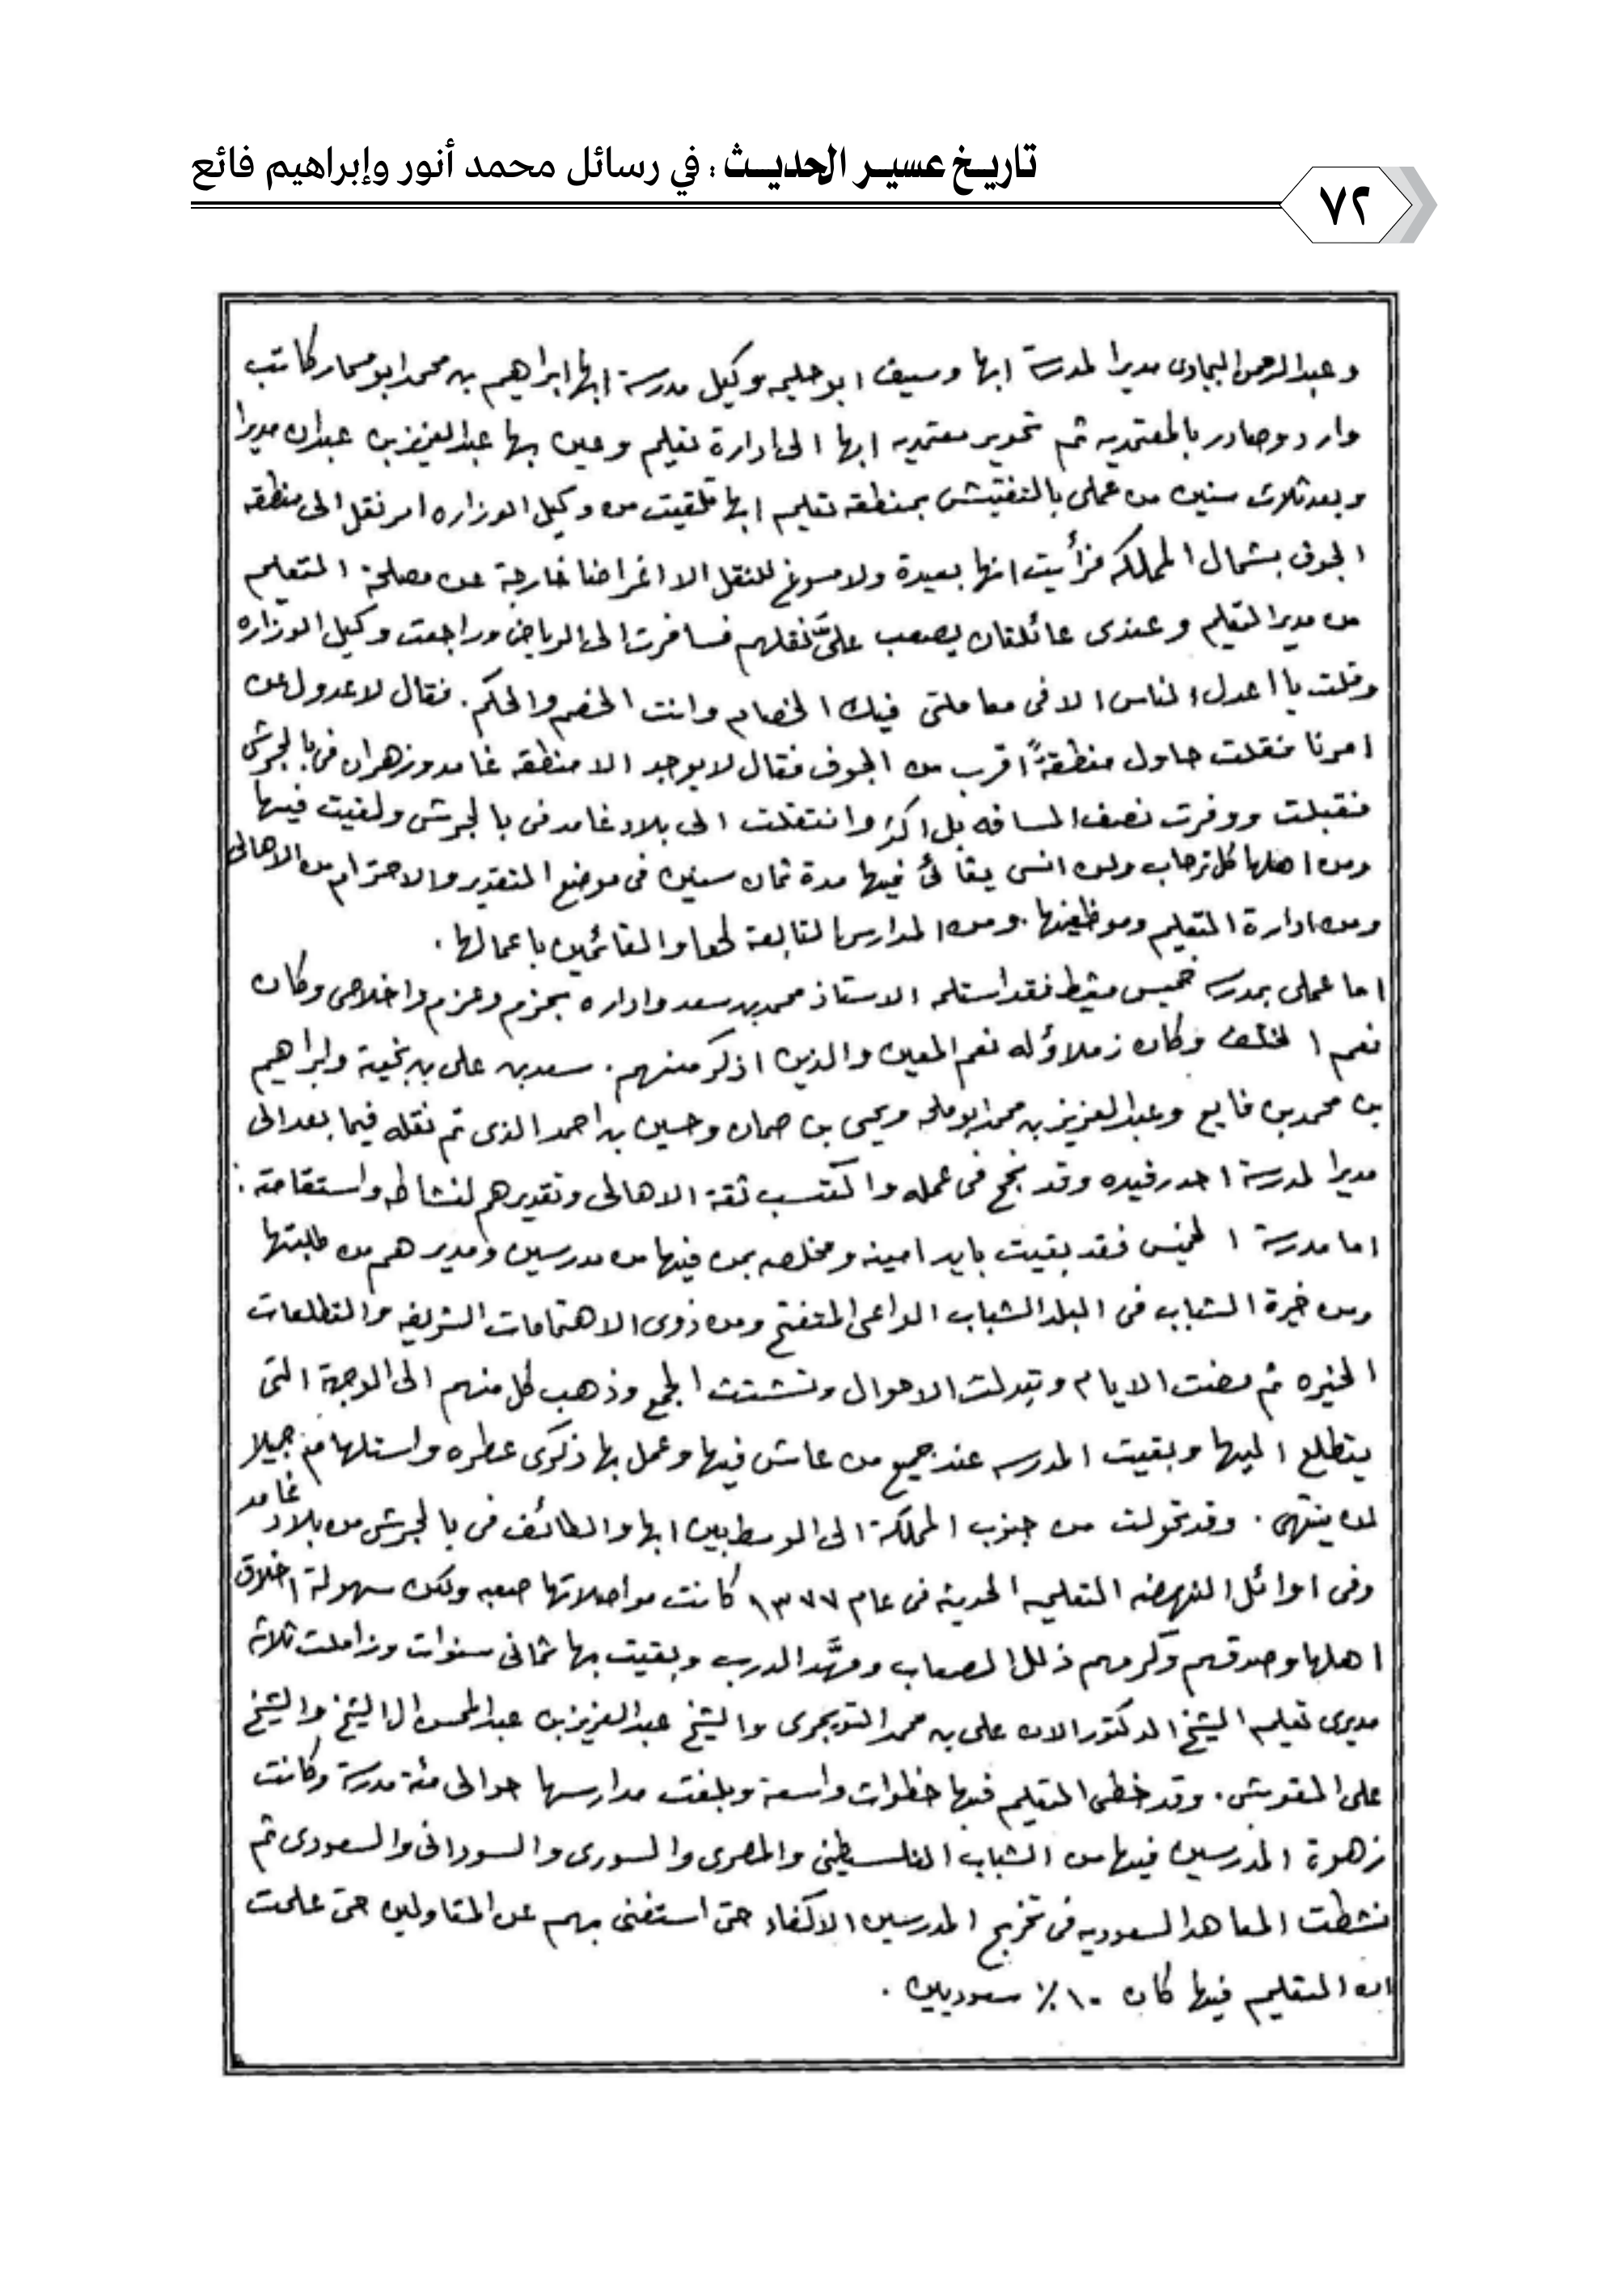 تاريخ عسير الحديث : في رسائل محمد أنور وإبراهيم فائع
٧٢
وعبدالرحمن البجادى مديرا لمدرسة ابها وسيف ابو حليمه وكيل مدرسة ابها ابراهيم بن محمد ابو مسمار كاتب
وارد وصادر بالمعتمديه ثم تحوير معتمديه ابها الى ادارة تعليم وعين بها عبدالعزيز بن عبدان مديرا
وبعد ثلاث سنين من عملى بالتفتيش بمنطقه تعليم ابها تلقيت من وكيل الوزاره امر نقل الى منطقه
الجوف بشمال المملكه فرأيت انها بعيدة ولا مسوغ للنقل الا اغراضا خارجة عن مصلحة التعليم
من مدير التعليم وعندى عائلتان يصعب علىّ نقلهم فسافرت الى الرياض وراجعت وكيل الوزاره
وقلت يا اعدل الناس الا فى معاملتى فيك الخصام وانت الخصم والحكم . فقال لا عدول عن
امرنا فقلت حاول منطقةً اقرب من الجوف فقال لا يوجد الا منطقه غامد وزهران فى بالجرشى
فقبلت ووفرت نصف المسافه بل اكثر وانتقلت الى بلاد غامد فى بالجرشى ولقيت فيها
ومن اهلها كل ترحاب ولن انسى بقائى فيها مدة ثمان سنين فى موضع التقدير والاحترام من الاهالى
ومن ادارة التعليم وموظفيها . ومن المدارس التابعة لها والقائمين باعمالها .
اما عملى بمدرسه خميس مشيط فقد استلمه الاستاذ محمد بن سعد واداره بحزم وعزم واخلاص وكان
نعم الخلف وكان زملاؤه له نعم المعين والذين اذكر منهم . سعد بن على بن بخيتة وابراهيم
بن محمد بن فايع وعبدالعزيز بن محمد ابو ملحه ويحيى بن حمان وحسين بن احمد الذى تم نقله فيما بعد الى
مديرا لمدرسة احد رفيده وقد نجح فى عمله واكتسب ثقة الاهالى وتقديرهم لنشاطه واستقامته .
اما مدرسة الخميس فقد بقيت بايد امينه ومخلصه بمن فيها من مدرسين ومديرهم من طلبتها
ومن خيرة الشباب فى البلد الشباب الواعى المتفتح ومن ذوى الاهتمامات الشريفه والتطلعات
الخيره ثم مضت الايام وتبدلت الاحوال وتشتت الجمع وذهب كل منهم الى الوجهة التى
يتطلع اليها وبقيت المدرسه عند جميع من عاش فيها وعمل بها ذكرى عطره واستلهام جميلا
لن ينتهى . وقد تحولت من جنوب المملكة الى الوسط بين ابها والطائف فى بالجرشى من بلاد غامد
وفى اوائل النهضه التعليميه الحديثه فى عام ١٣٧٧ كانت مواصلاتها صعبه ولكن سهولة اخلاق
اهلها وصدقهم وكرمهم ذلل الصعاب ومهَّد الدرب وبقيت بها ثمانى سنوات وزاملت ثلاثه
مديرى تعليم الشيخ الدكتور الان على بن محمد التويجرى والشيخ عبدالعزيز بن عبدالمحسن ال الشيخ والشيخ
على القويتى . وقد خطى التعليم فيها خطوات واسعة وبلغت مدارسها حوالى مئة مدرسة وكانت
زهوة المدرسين فيها من الشباب الفلسطينى والمصرى والسورى والسودانى والسعودى ثم
نشطت المعاهد السعوديه فى تخريج المدرسين الاكفاء حتى استغنى بهم عن المتعاولين حتى علمت
ان التعليم فيها كان ١٠٪ سعوديين .